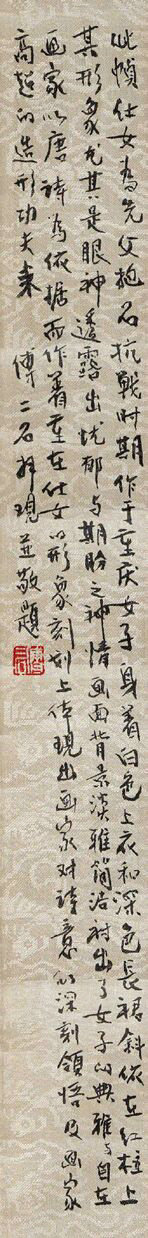 此幀仕女為先父抱石抗戰时期作于重庆女子身着白色上衣和深色長裙斜依在红柱上
其形象尤其是眼神透露出忧郁与期盼之神情画面背景淡雅简洁衬出了女子的典雅与自在
画家以唐詩為依据而作着重在仕女的形象刻划上体現出画家对詩意的深刻領悟及画家
高超的造形功夫来 傅二石拜观并敬題